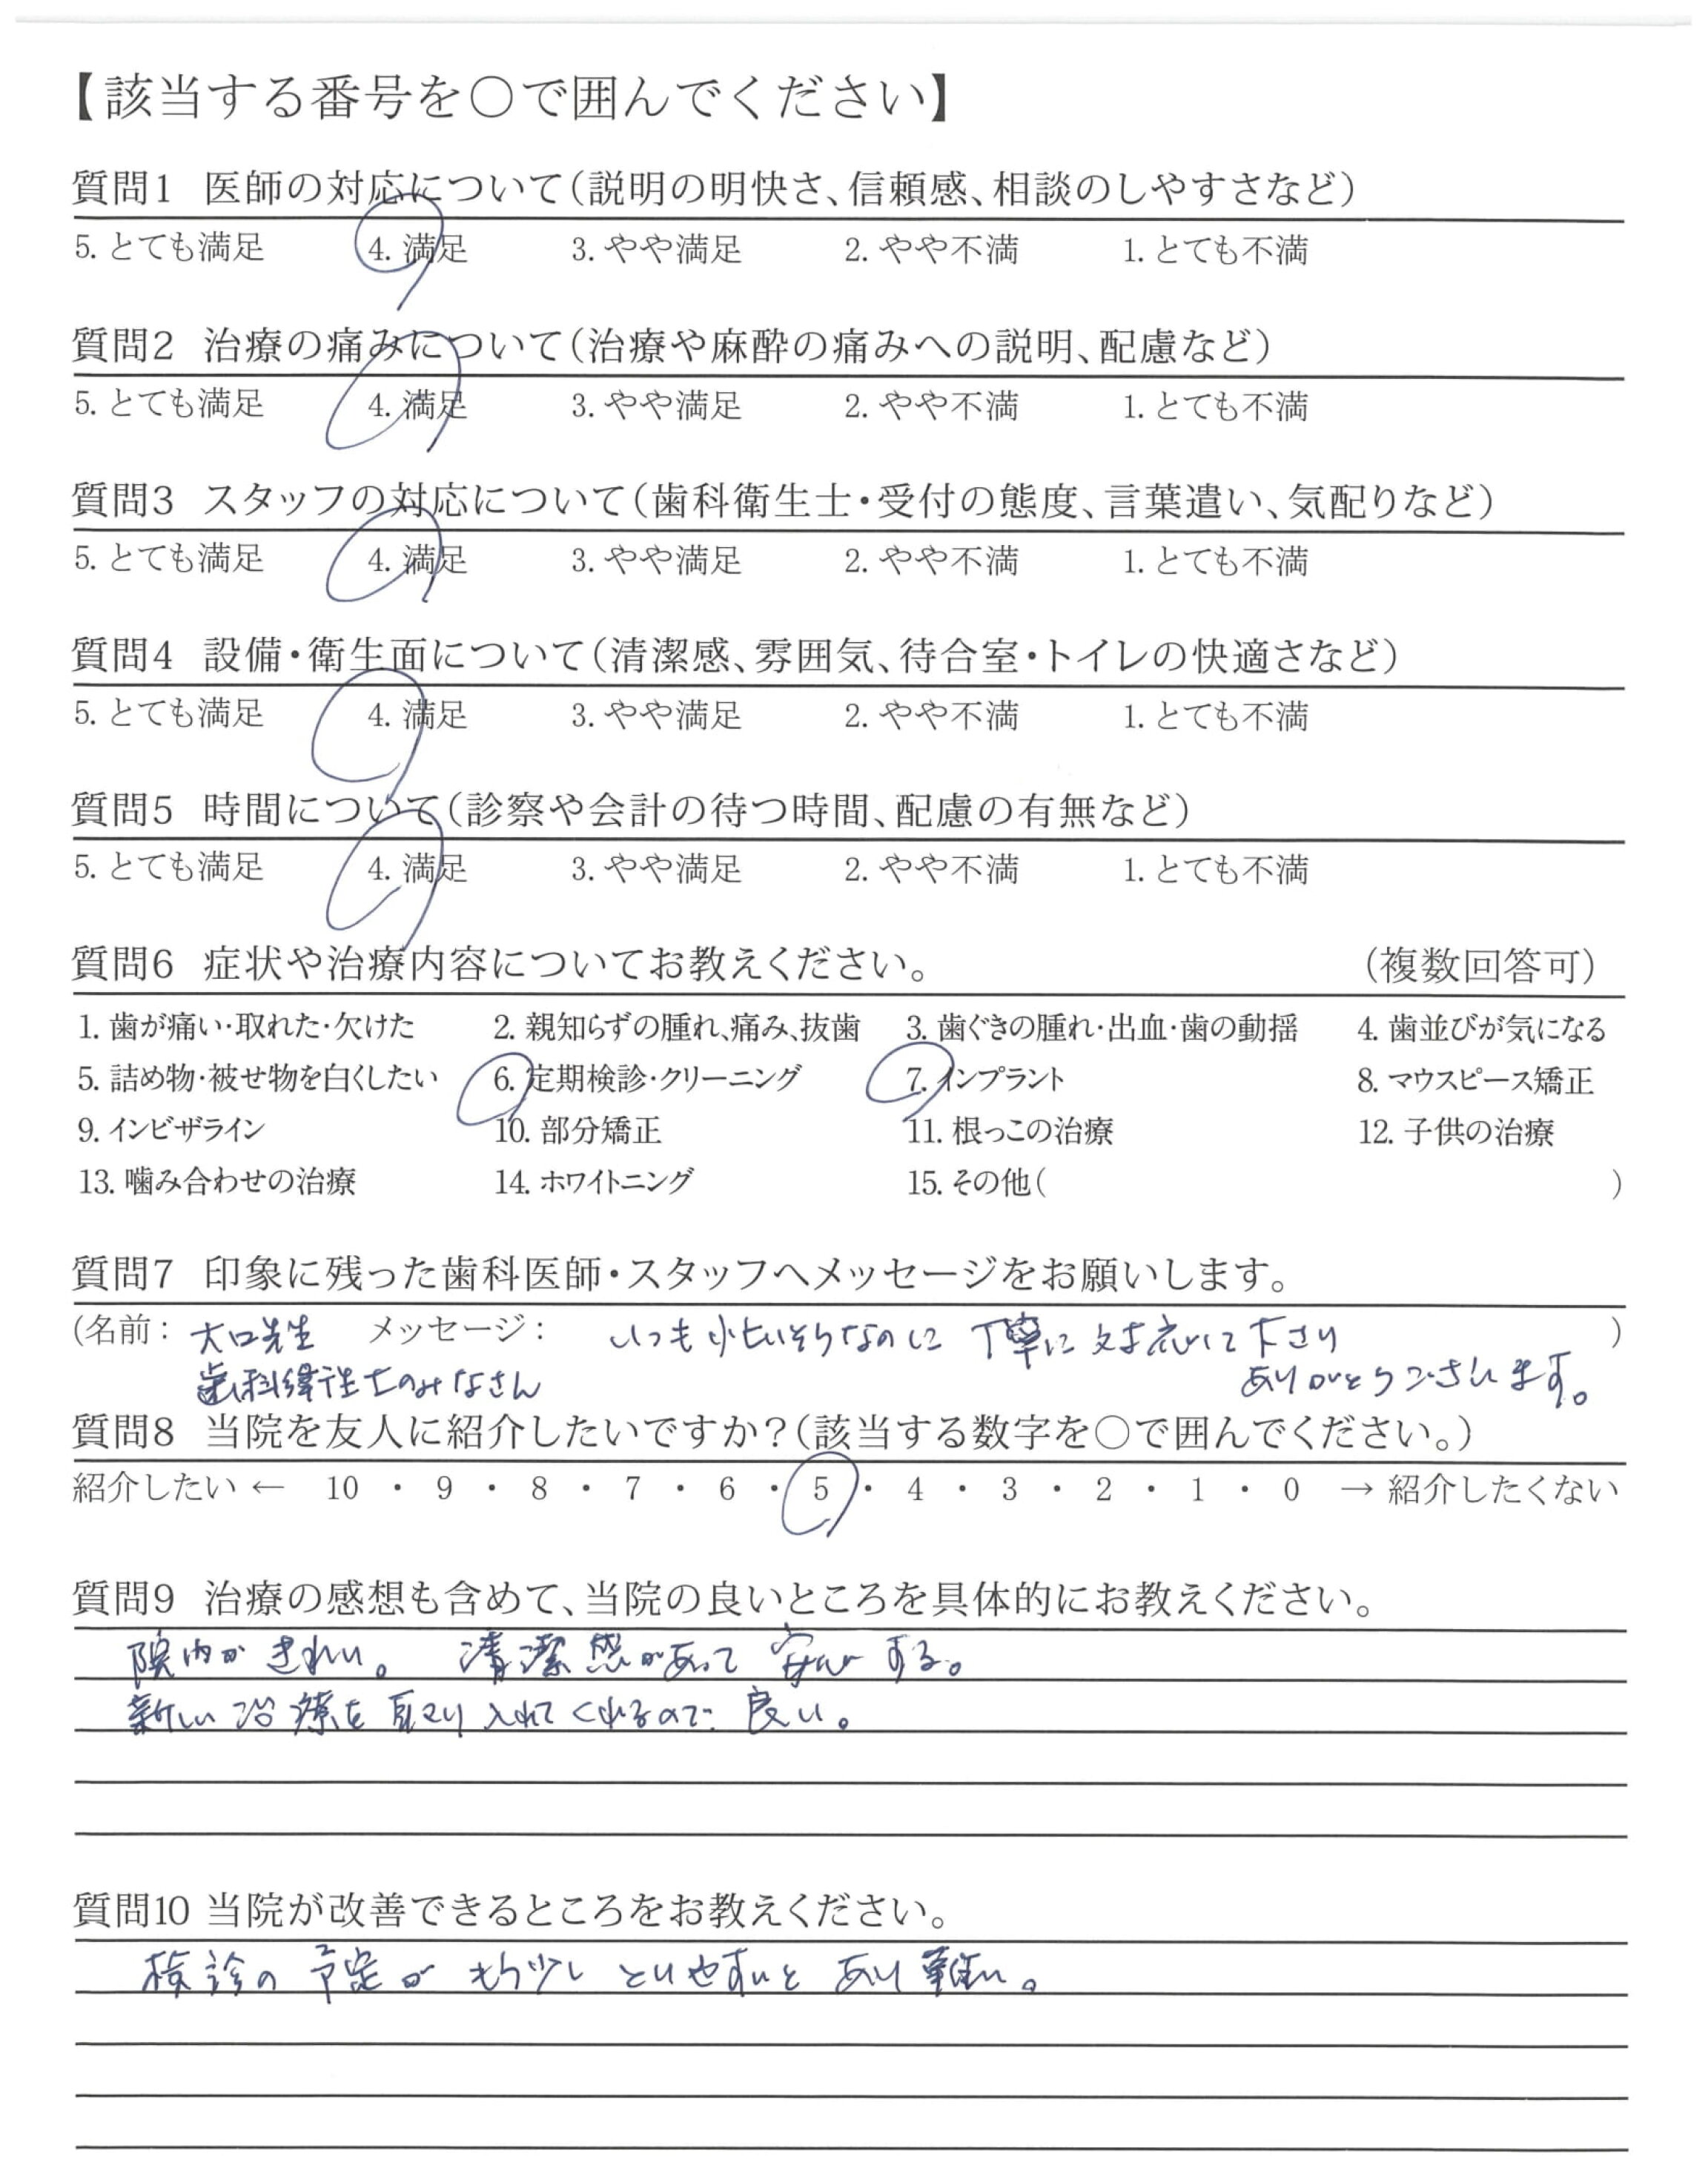 【該当する番号を○で囲んでください】
質問1 医師の対応について(説明の明快さ、信頼感、相談のしやすさなど)
5. とても満足 4. 満足 3. やや満足 2. やや不満 1. とても不満
質問2 治療の痛みについて(治療や麻酔の痛みへの説明、配慮など)
5. とても満足 4. 満足 3. やや満足 2. やや不満 1. とても不満
質問3 スタッフの対応について(歯科衛生士・受付の態度、言葉遣い、気配りなど)
5. とても満足 4. 満足 3. やや満足 2. やや不満 1. とても不満
質問4 設備・衛生面について(清潔感、雰囲気、待合室・トイレの快適さなど)
5. とても満足 4. 満足 3. やや満足 2. やや不満 1. とても不満
質問5 時間について(診察や会計の待つ時間、配慮の有無など)
5. とても満足 4. 満足 3. やや満足 2. やや不満 1. とても不満
質問6 症状や治療内容についてお教えください。 (複数回答可)
1. 歯が痛い・取れた・欠けた 2. 親知らずの腫れ、痛み、抜歯 3. 歯ぐきの腫れ・出血・歯の動揺 4. 歯並びが気になる
5. 詰め物・被せ物を白くしたい 6. 定期検診・クリーニング 7. インプラント 8. マウスピース矯正
9. インビザライン 10. 部分矯正 11. 根っこの治療 12. 子供の治療
13. 噛み合わせの治療 14. ホワイトニング 15. その他( )
質問7 印象に残った歯科医師・スタッフへメッセージをお願いします。
(名前: 大口先生 メッセージ: いつも忙しいそうなのに 丁寧に対応して下さり )
歯科衛生士のみなさん ありがとうございます。
質問8 当院を友人に紹介したいですか?(該当する数字を○で囲んでください。)
紹介したい ← 10 ・ 9 ・ 8 ・ 7 ・ 6 ・ 5 ・ 4 ・ 3 ・ 2 ・ 1 ・ 0 → 紹介したくない
質問9 治療の感想も含めて、当院の良いところを具体的にお教えください。
院内がきれい。 清潔感があって安心する。
新しい治療を取り入れてくれるので良い。
質問10 当院が改善できるところをお教えください。
検診の予定がもう少しとりやすいとあり難い。